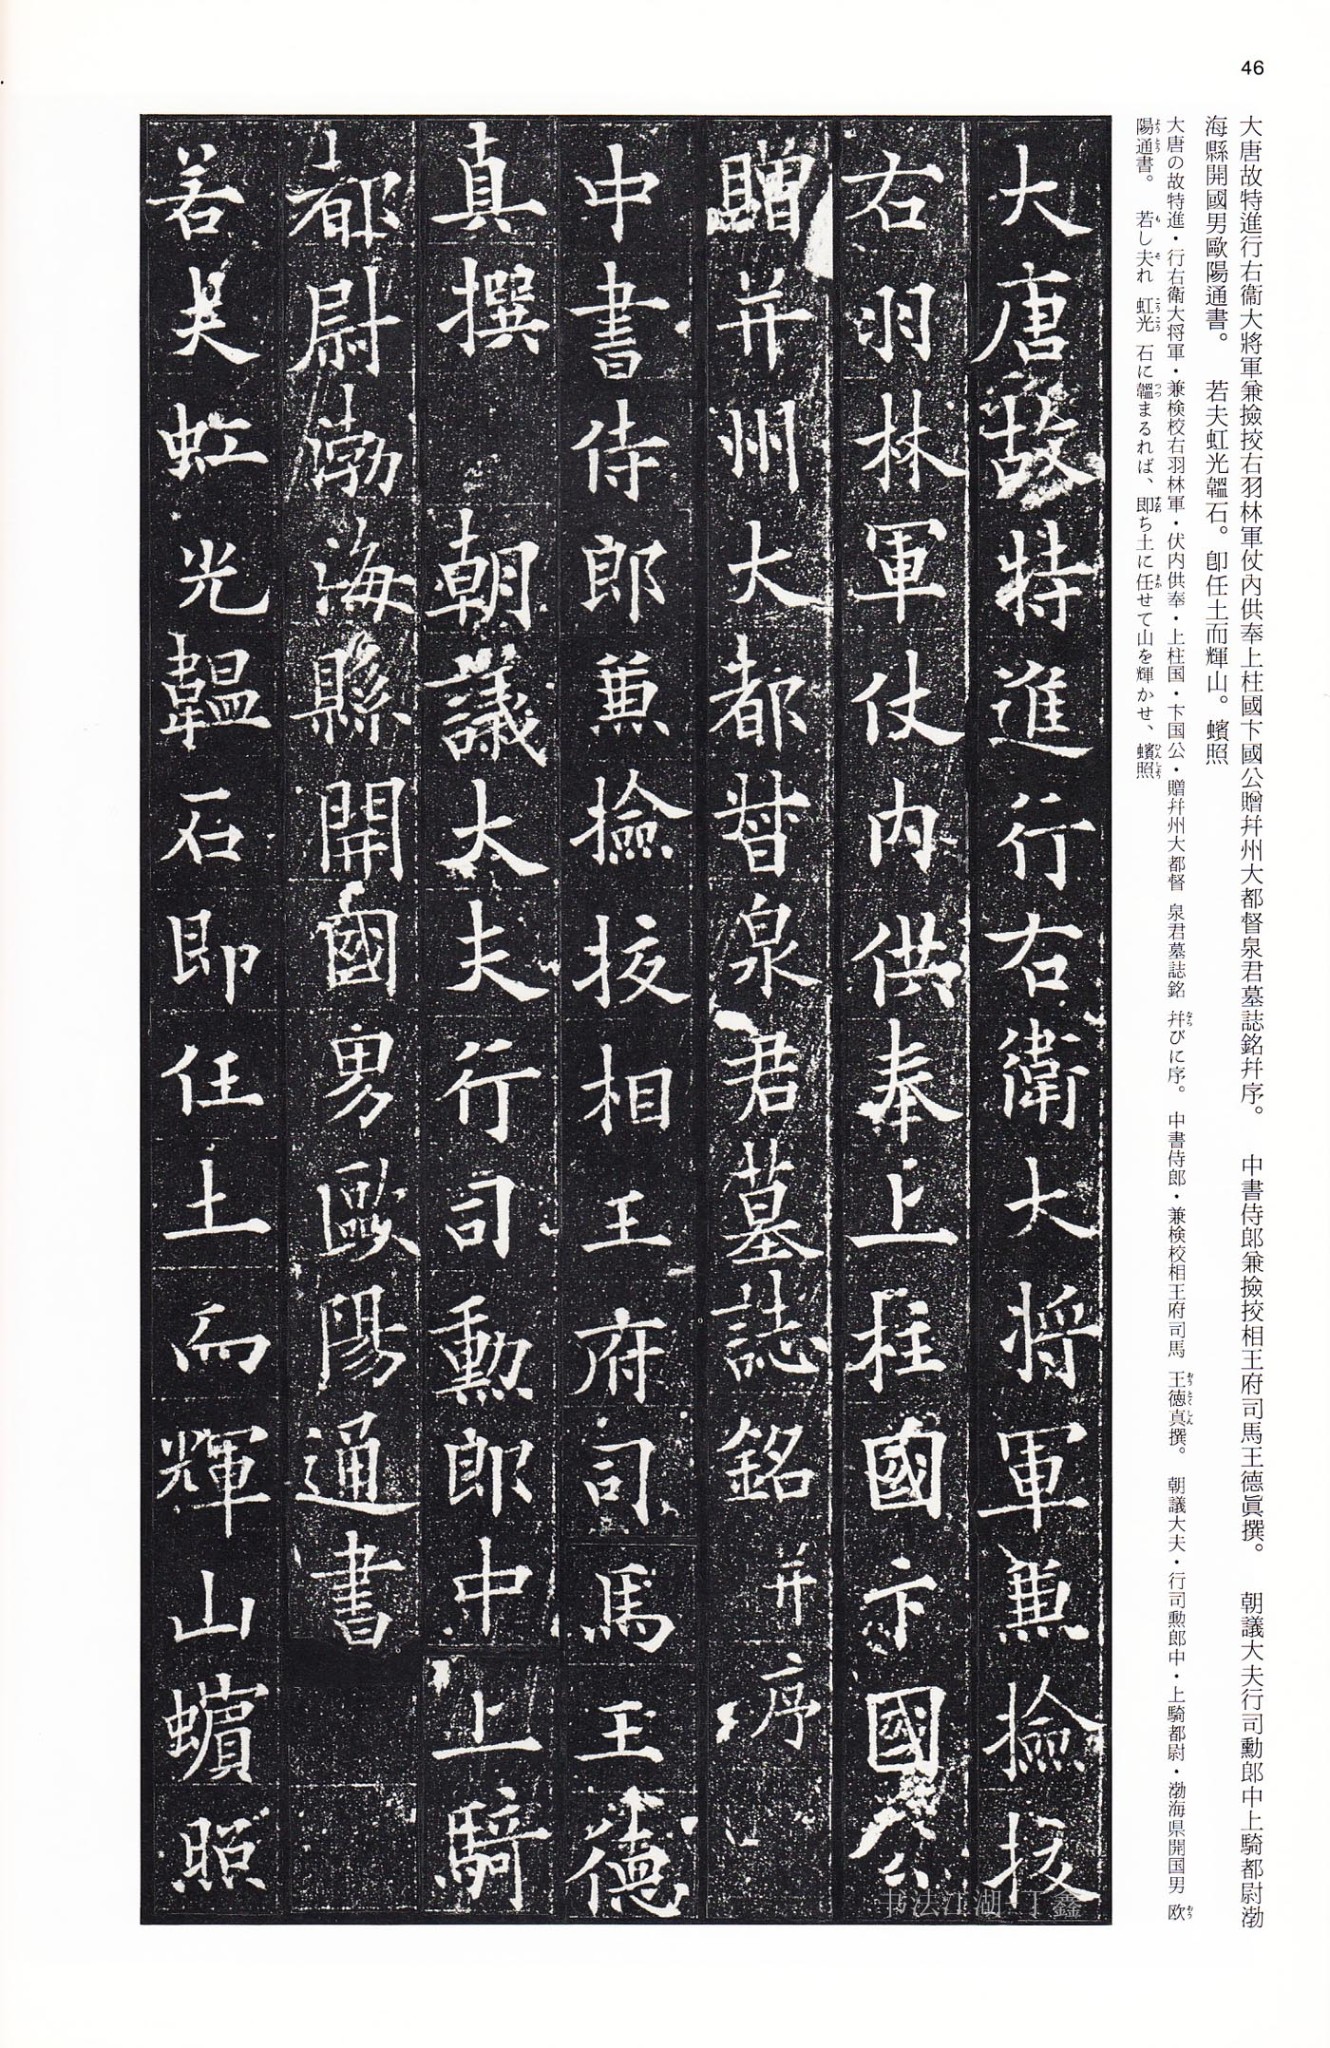 46
大唐故特進行右衞大將軍兼撿挍右羽林軍仗內供奉上柱國卞國公贈幷州大都督泉君墓誌銘幷序。 中書侍郎兼撿挍相王府司馬王德眞撰。 朝議大夫行司勳郎中上騎都尉渤
海縣開國男歐陽通書。 若夫虹光韞石。卽任土而輝山。蠙照
大唐の故特進・行右衛大将軍・兼検校右羽林軍・仗内供奉・上柱国・卞国公・贈幷州大都督 泉君墓誌銘 幷びに序。 中書侍郎・兼検校相王府司馬 王徳真撰。 朝議大夫・行司勲郎中・上騎都尉・渤海県開国男 欧
陽通書。 若し夫れ 虹光 石に韞まるれば、即ち土に任せて山を輝かせ、蠙照
大唐故特進行右衛大将軍兼撿挍
右羽林軍仗内供奉上柱國卞國公
贈并州大都督泉君墓誌銘并序
中書侍郎兼撿挍相王府司馬王德
真撰 朝議大夫行司勳郎中上騎
都尉渤海縣開國男歐陽通書
若夫虹光韞石即任土而輝山蠙照
书法江湖 丁鑫